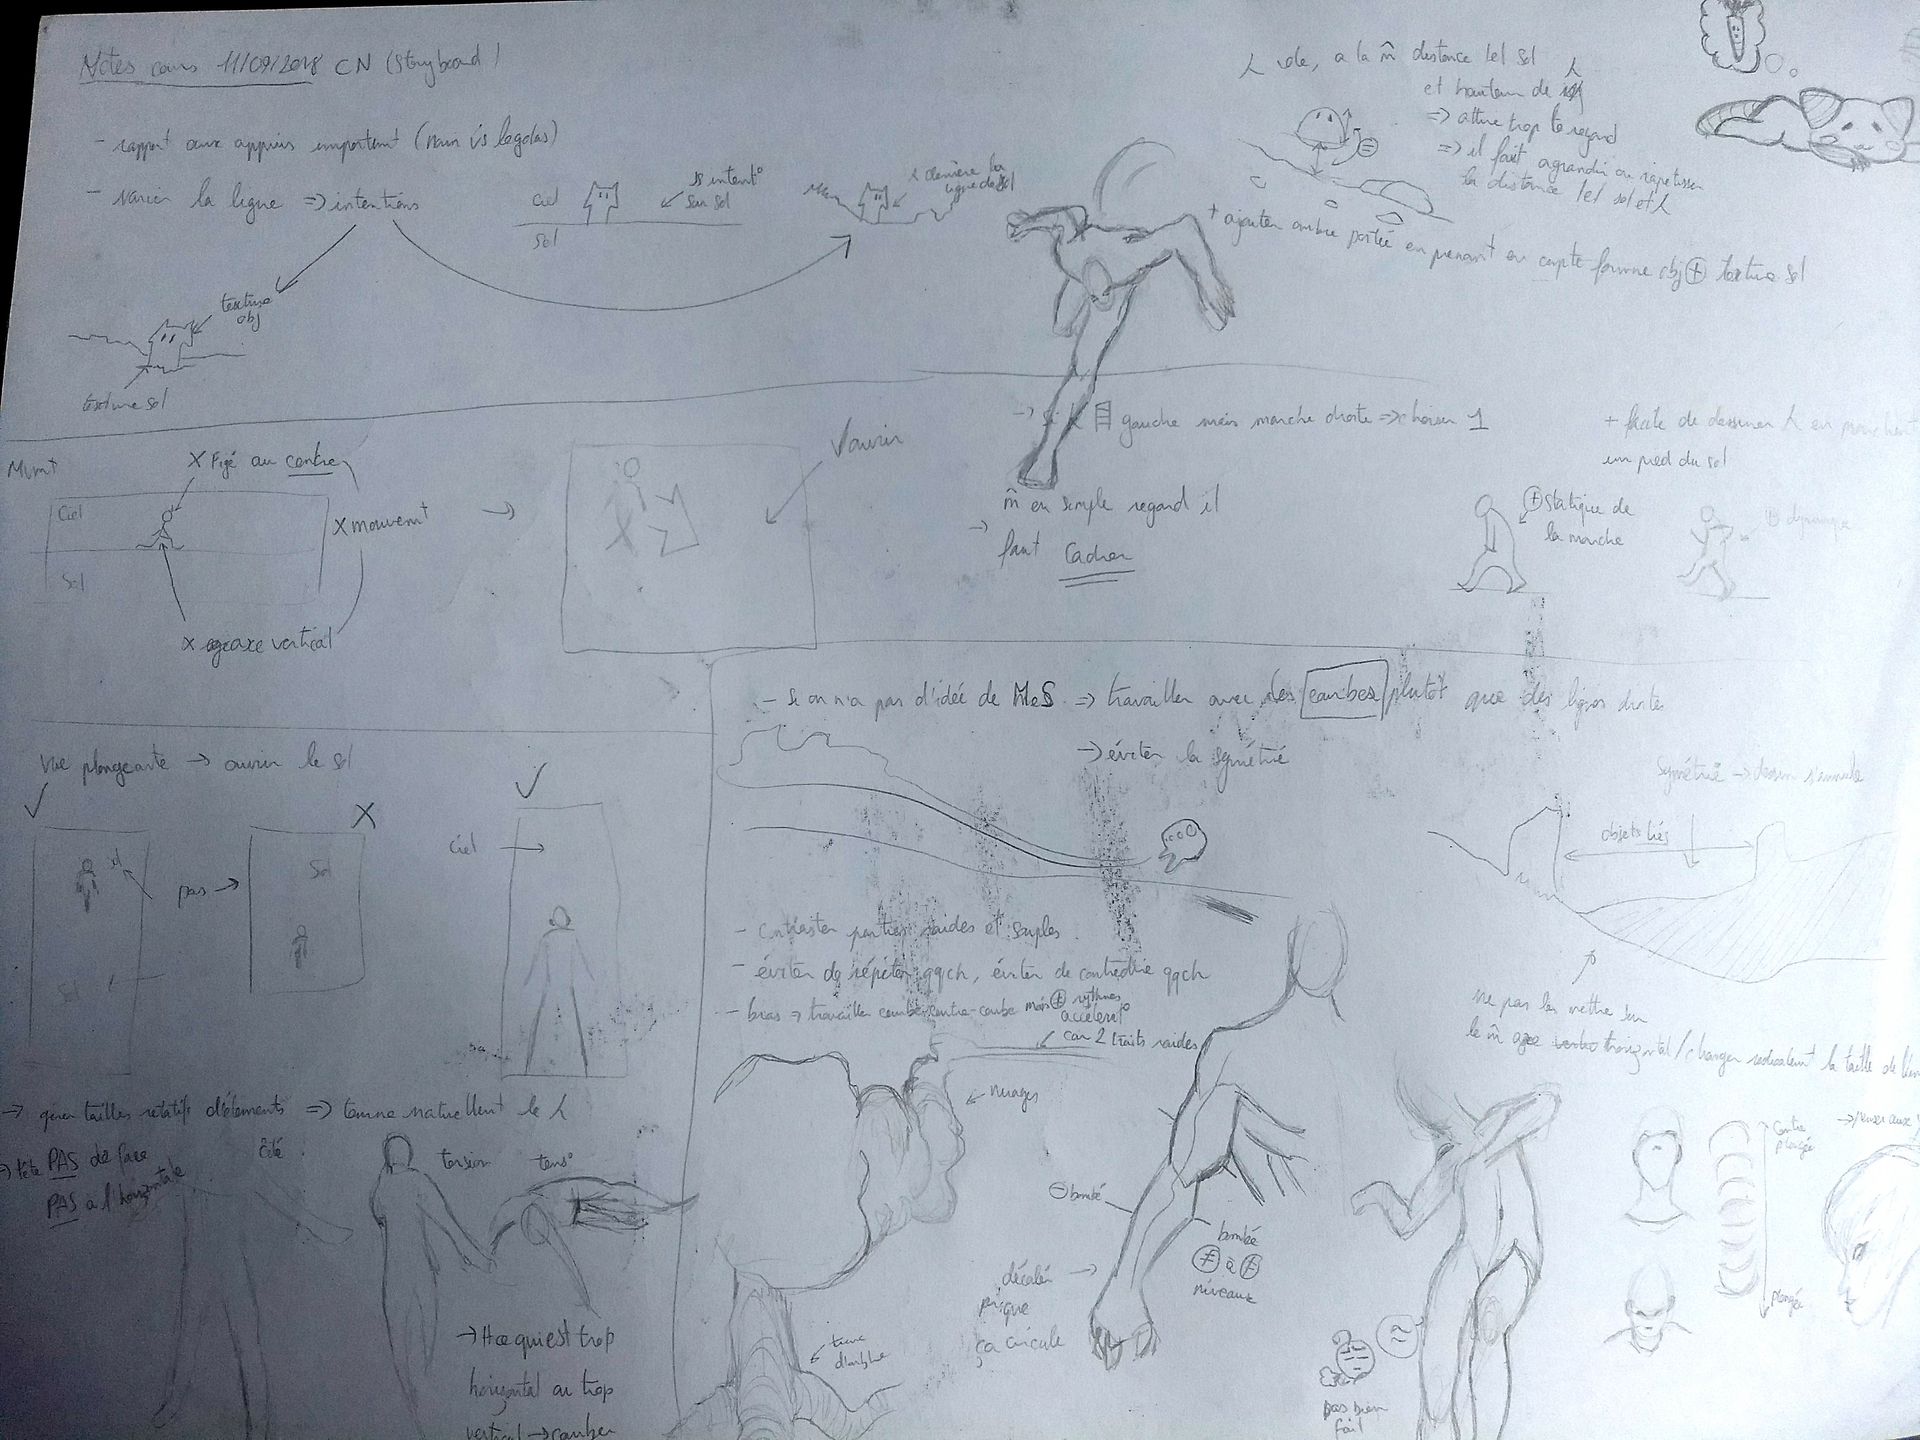 Notes cours 11/09/2018 CN (Storyboard)
- rapport aux appuis important (nain vs legolas)
- varier la ligne => intentions
ciel
sol
intent°
sur sol
derrière la
ligne de sol
texture
obj
texture sol
de, a la m̂ distance sol
et hauteur de
=> attire trop le regard
=> il faut agrandir ou rapetisser
la distance sol et
+ ajouter ombre portée en prenant en compte forme obj ⊕ texture sol
Mvmt
X Figé au centre
Ciel
Sol
X mouvemt
X axe vertical
✓ ouvrir
gauche mais marche droite => choisir 1
m̂ en simple regard il
→ faut Cadrer
+ facile de dessiner en penchant
un pied du sol
⊕ statique de
la marche
⊕ dynamique
Vue plongeante → ouvrir le sol
✓
X
✓
sol
pas →
Sol
Sol
Ciel →
→ gérer tailles relatifs d'éléments => tourne naturellemt le
→ tête PAS de face
PAS à l'horizontale
torsion
tens°
→ qui est trop
horizontal ou trop
vertical → courber
- Si on n'a pas d'idée de MeS => travailler avec des courbes plutôt que des lignes droites
→ éviter la symétrie
Symétrie → dessin s'annule
objets liés
ne pas les mettre sur
le m̂ axe horizontal / changer radicalemt la taille de
- Contraster parties raides et souples
- éviter de répéter qqch, éviter de contredire qqch
- bras => travailler courbe contre-courbe mais ⊕ rythmes
accélérat°
car 2 traits raides
← nuages
tronc
d'arbre
⊖ bombé
bombé
≠ à ≠
niveaux
décaler →
ça circule
pas bien
fait
Contre
plongée
plongée
→ Penser aux